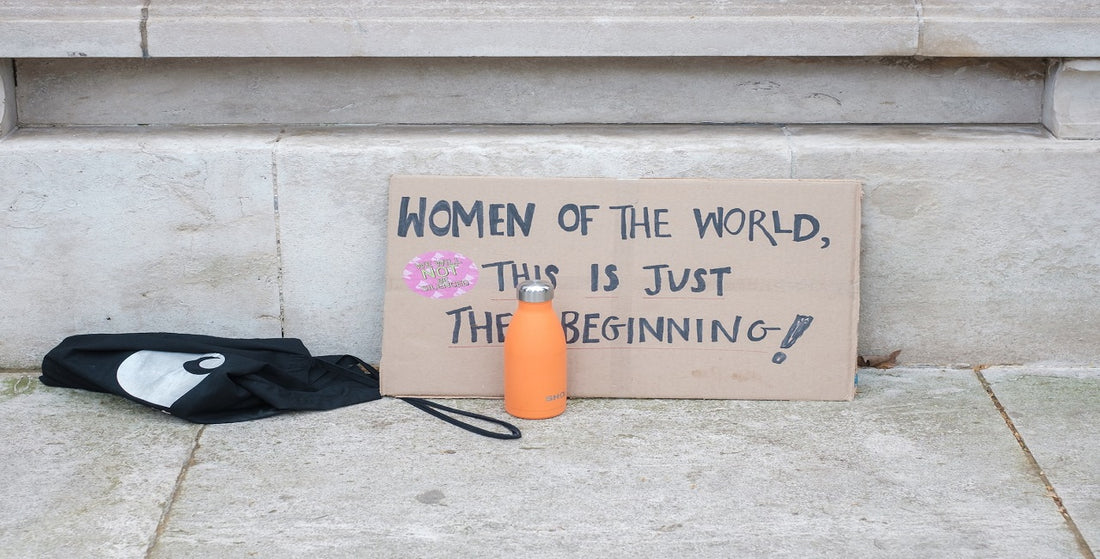 WOMEN OF THE WORLD,
THIS IS JUST
THE BEGINNING!
NOT